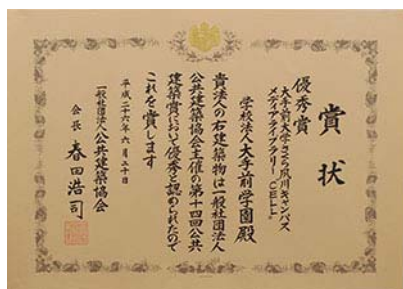 賞状
優秀賞
大手前大学さくら夙川キャンパス
メディアライブラリー CELL
学校法人大手前学園殿
貴法人の右建築物は一般社団法人
公共建築協会主催の第十四回公共
建築賞において優秀と認められたので
これを賞します
平成二十六年六月二十日
一般社団法人公共建築協会
会長 春田浩司